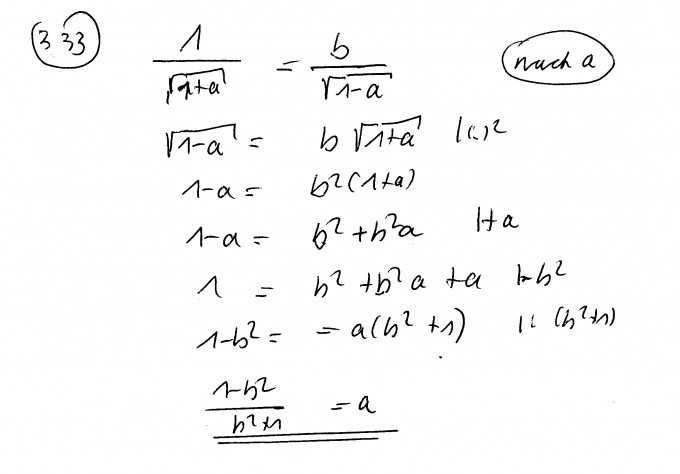 3.33 1/√(1+a) = b/√(1-a) nach a
√(1-a) = b √(1+a) |(..)²
1-a = b²(1+a)
1-a = b²+b²a |+a
1 = b²+b²a+a |-b²
1-b² = = a(b²+1) |: (b²+1)
(1-b²)/(b²+1) = a